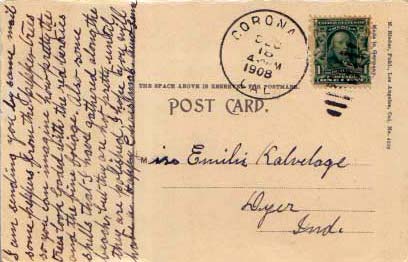 I am sending you by same mail
some peppers from the Pepper trees
so you can imagine how pretty the
trees look loaded with the red berries
and the fine foliage. Also some
shells that I have gathered along the
beach, they are not pretty until
they are polished. I hope you will
CORONA
DEC
18
1908
CAL.
THE SPACE ABOVE IS RESERVED FOR POSTMARK.
POST CARD.
Miss Emilie Kalvelage
Dyer
Ind.
Made in Germany.
M. Rieder, Publ., Los Angeles, Cal. No.